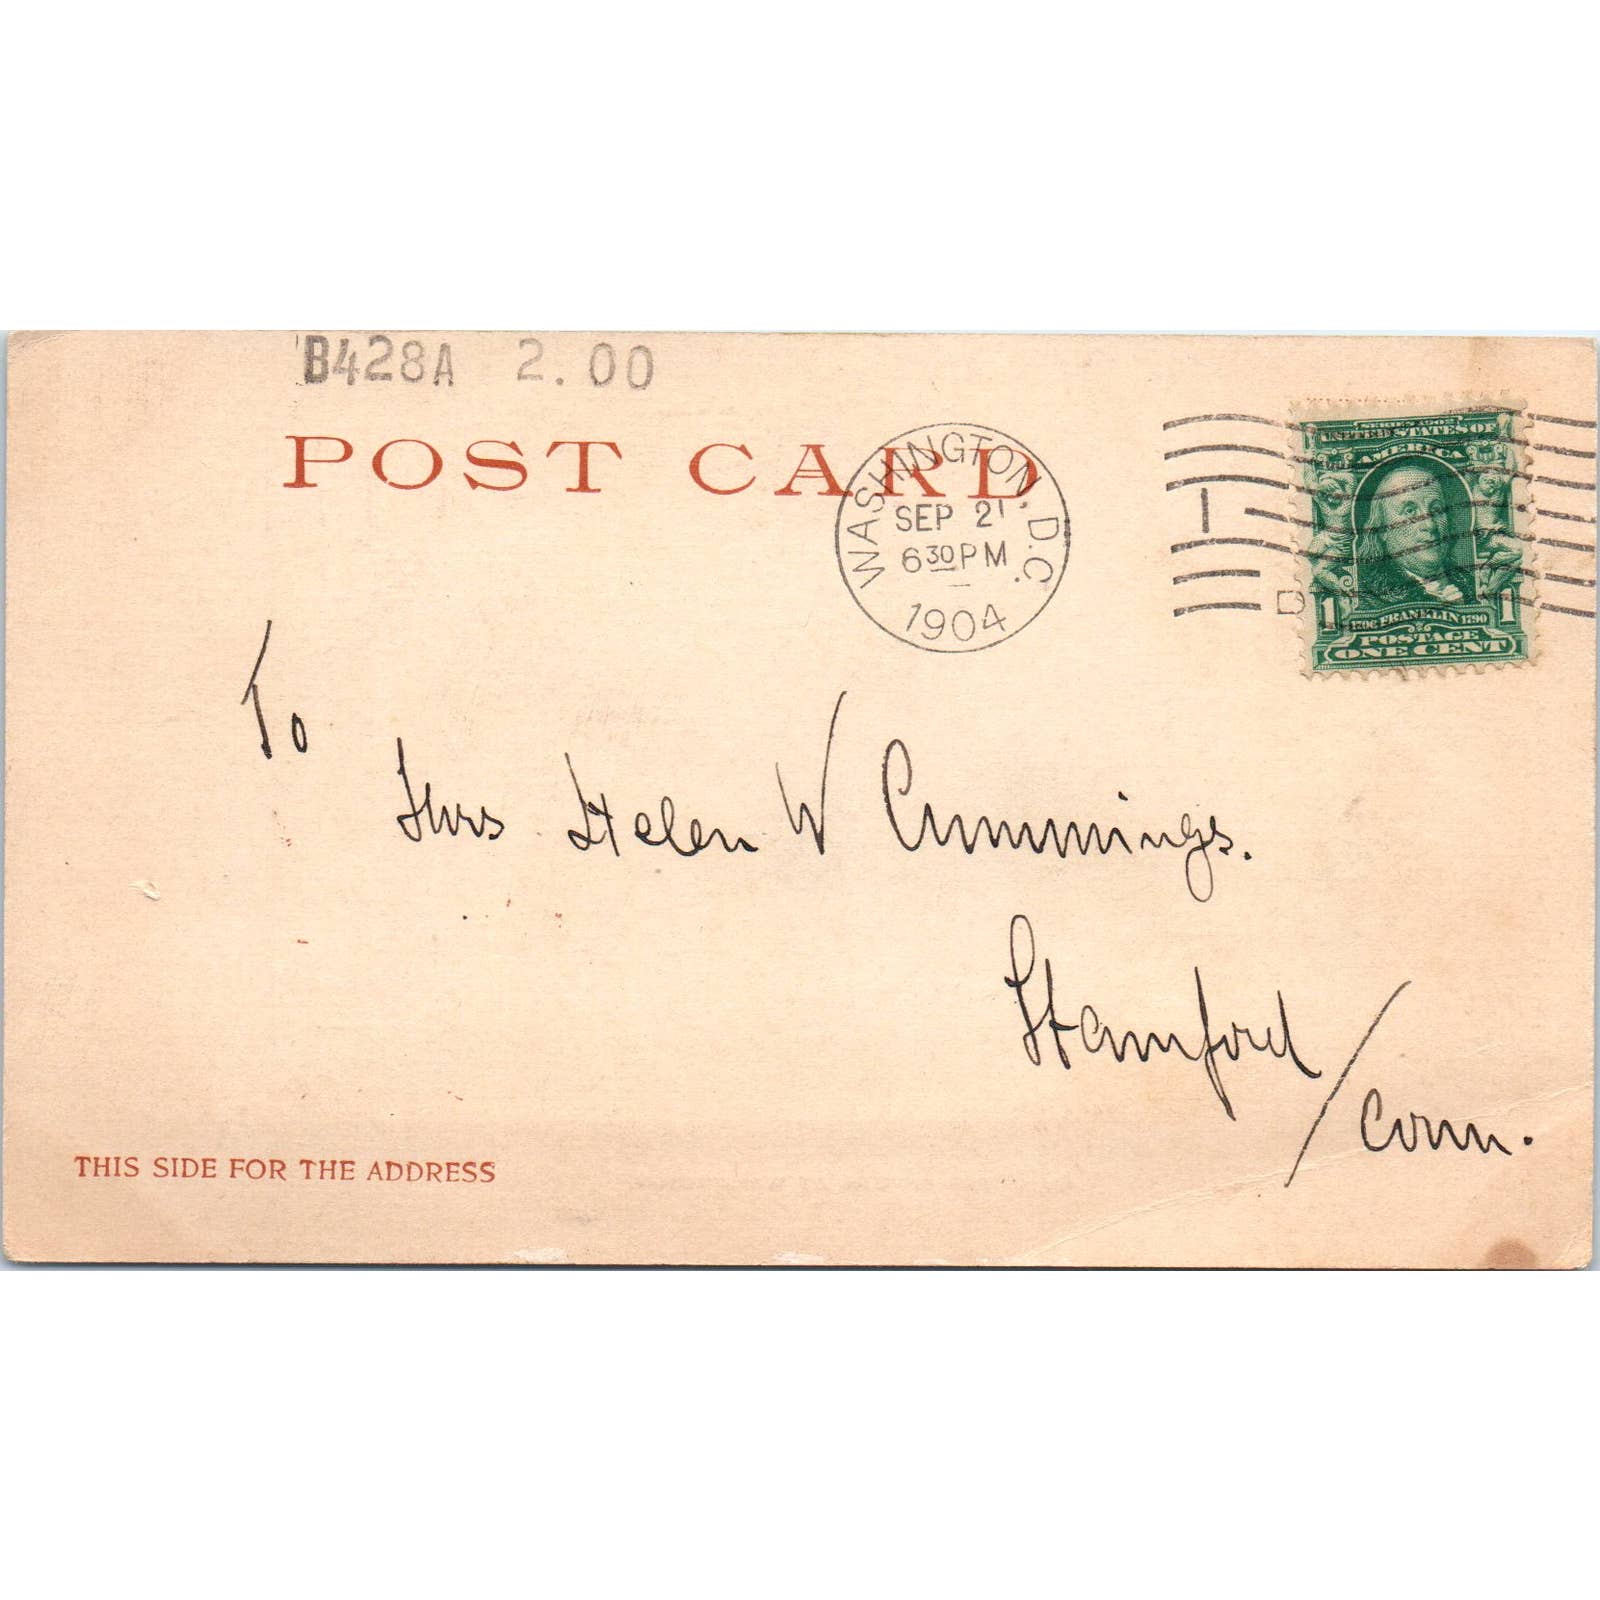 B428A 2.00
POST CARD
WASHINGTON, D.C.
SEP 21
6 30 PM
1904
1
D
SERIES 1902
UNITED STATES OF
AMERICA
1 1706 FRANKLIN 1790 1
POSTAGE
ONE CENT
To
Mrs Helen W Cummings.
Stamford
/ Conn.
THIS SIDE FOR THE ADDRESS